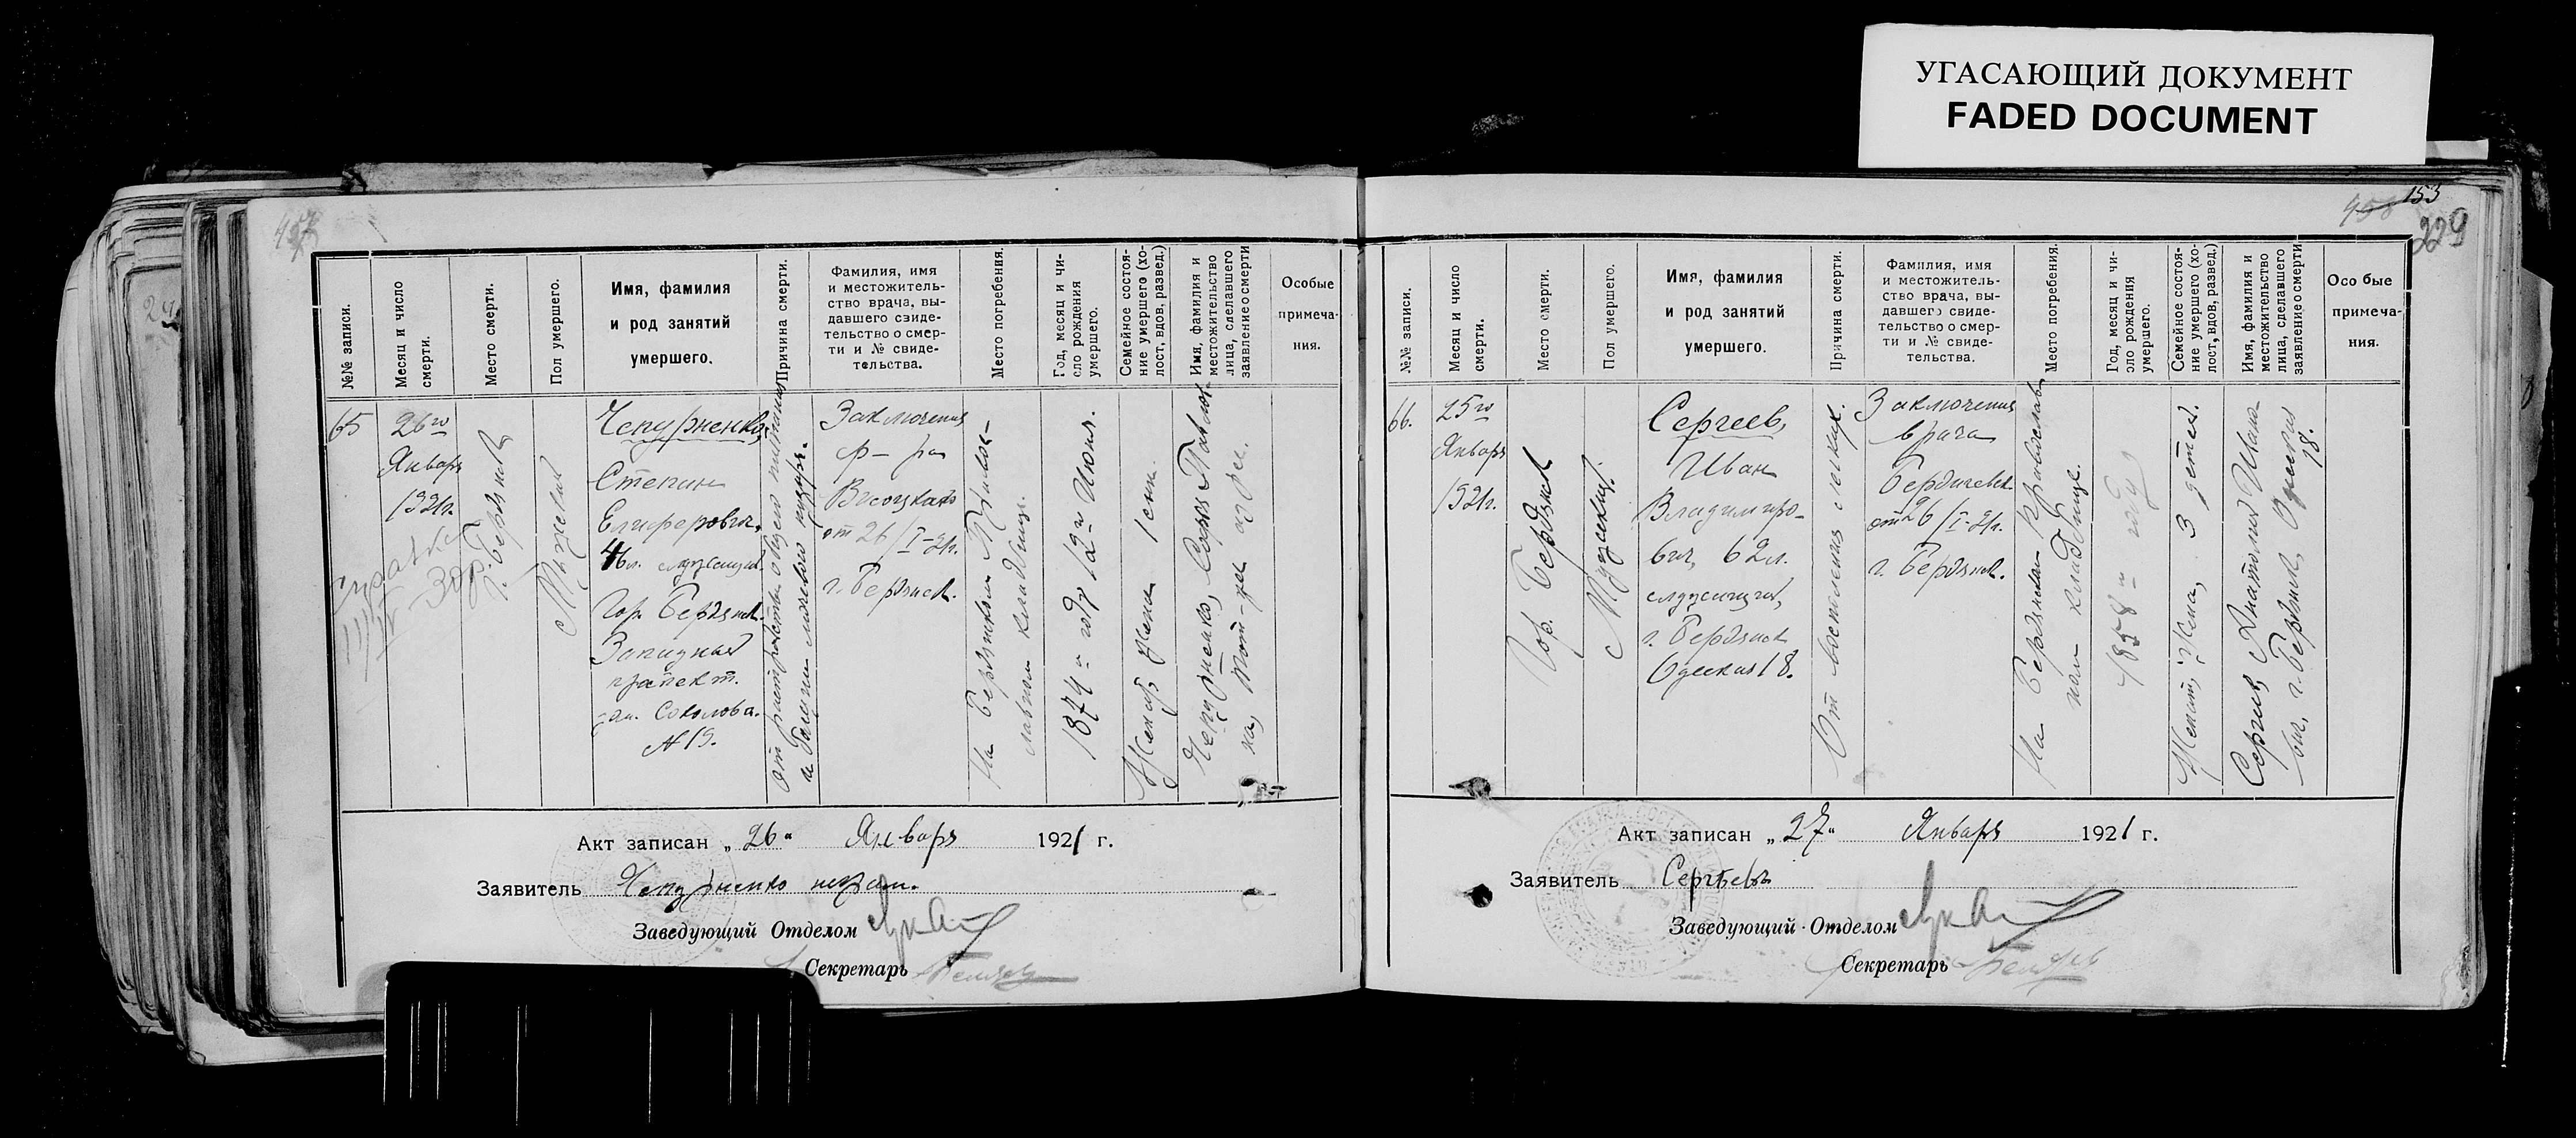 УГАСАЮЩИЙ ДОКУМЕНТ
FADED DOCUMENT
№№ записи.
Месяц и число
смерти.
Место смерти.
Пол умершего.
Имя, фамилия
и род занятий
умершего.
Причина смерти.
Фамилия, имя
и местожитель-
ство врача, вы-
давшего свиде-
тельство о смер-
ти и № свиде-
тельства.
Место погребения.
Год, месяц и чи-
сло рождения
умершего.
Семейное состоя-
ние умершего (хо-
лост, вдов, развед.)
Имя, фамилия и
местожительство
лица, сделавшего
заявление о смерти
Особые
примеча-
ния.
65
26го
Января
1921г.
г. Бердянск
Мужской
Чепурненко,
Степан
Елиферович,
46л. служащий
Гор. Бердянск.
Западный
проспект.
дом. Соколова.
№ 19.
Заключения
д-ра
Высоцкаго
от 26/I-21г.
г. Бердянск.
На Бердянском Православ-
лавном кладбище.
1874 году 12го Июня.
Женат, жена 1 сын
Чепурненко, Софья Павлов-
на, той-же адрес.
Акт записан „26" Января 1921 г.
Заявитель Чепурненко неграм.
Заведующий Отделом
Секретарь
153
229
№№ записи.
Месяц и число
смерти.
Место смерти.
Пол умершего.
Имя, фамилия
и род занятий
умершего.
Причина смерти.
Фамилия, имя
и местожитель-
ство врача, вы-
давшего свиде-
тельство о смер-
ти и № свиде-
тельства.
Место погребения.
Год, месяц и чи-
сло рождения
умершего.
Семейное состоя-
ние умершего (хо-
лост, вдов, развед.)
Имя, фамилия и
местожительство
лица, сделавшего
заявление о смерти
Особые
примеча-
ния.
66.
25го
Января
1921г.
Гор. Бердянск
Мужской.
Сергеев,
Иван
Владимиро-
вич, 62л.
служащий,
г. Бердянск
Одеская 18.
От воспаления легких.
Заключения
врача
Бердичевск.
от 26/I-21г.
г. Бердянск.
На Бердянском Православ
ном кладбище.
1858 году
Женат, жена, 3 детей.
Сергеев, Анатолий Ивано-
вич, г. Бердянск, Одесская
18.
Акт записан „27" Января 1921 г.
Заявитель Сергѣевъ
Заведующий Отделом
Секретарь